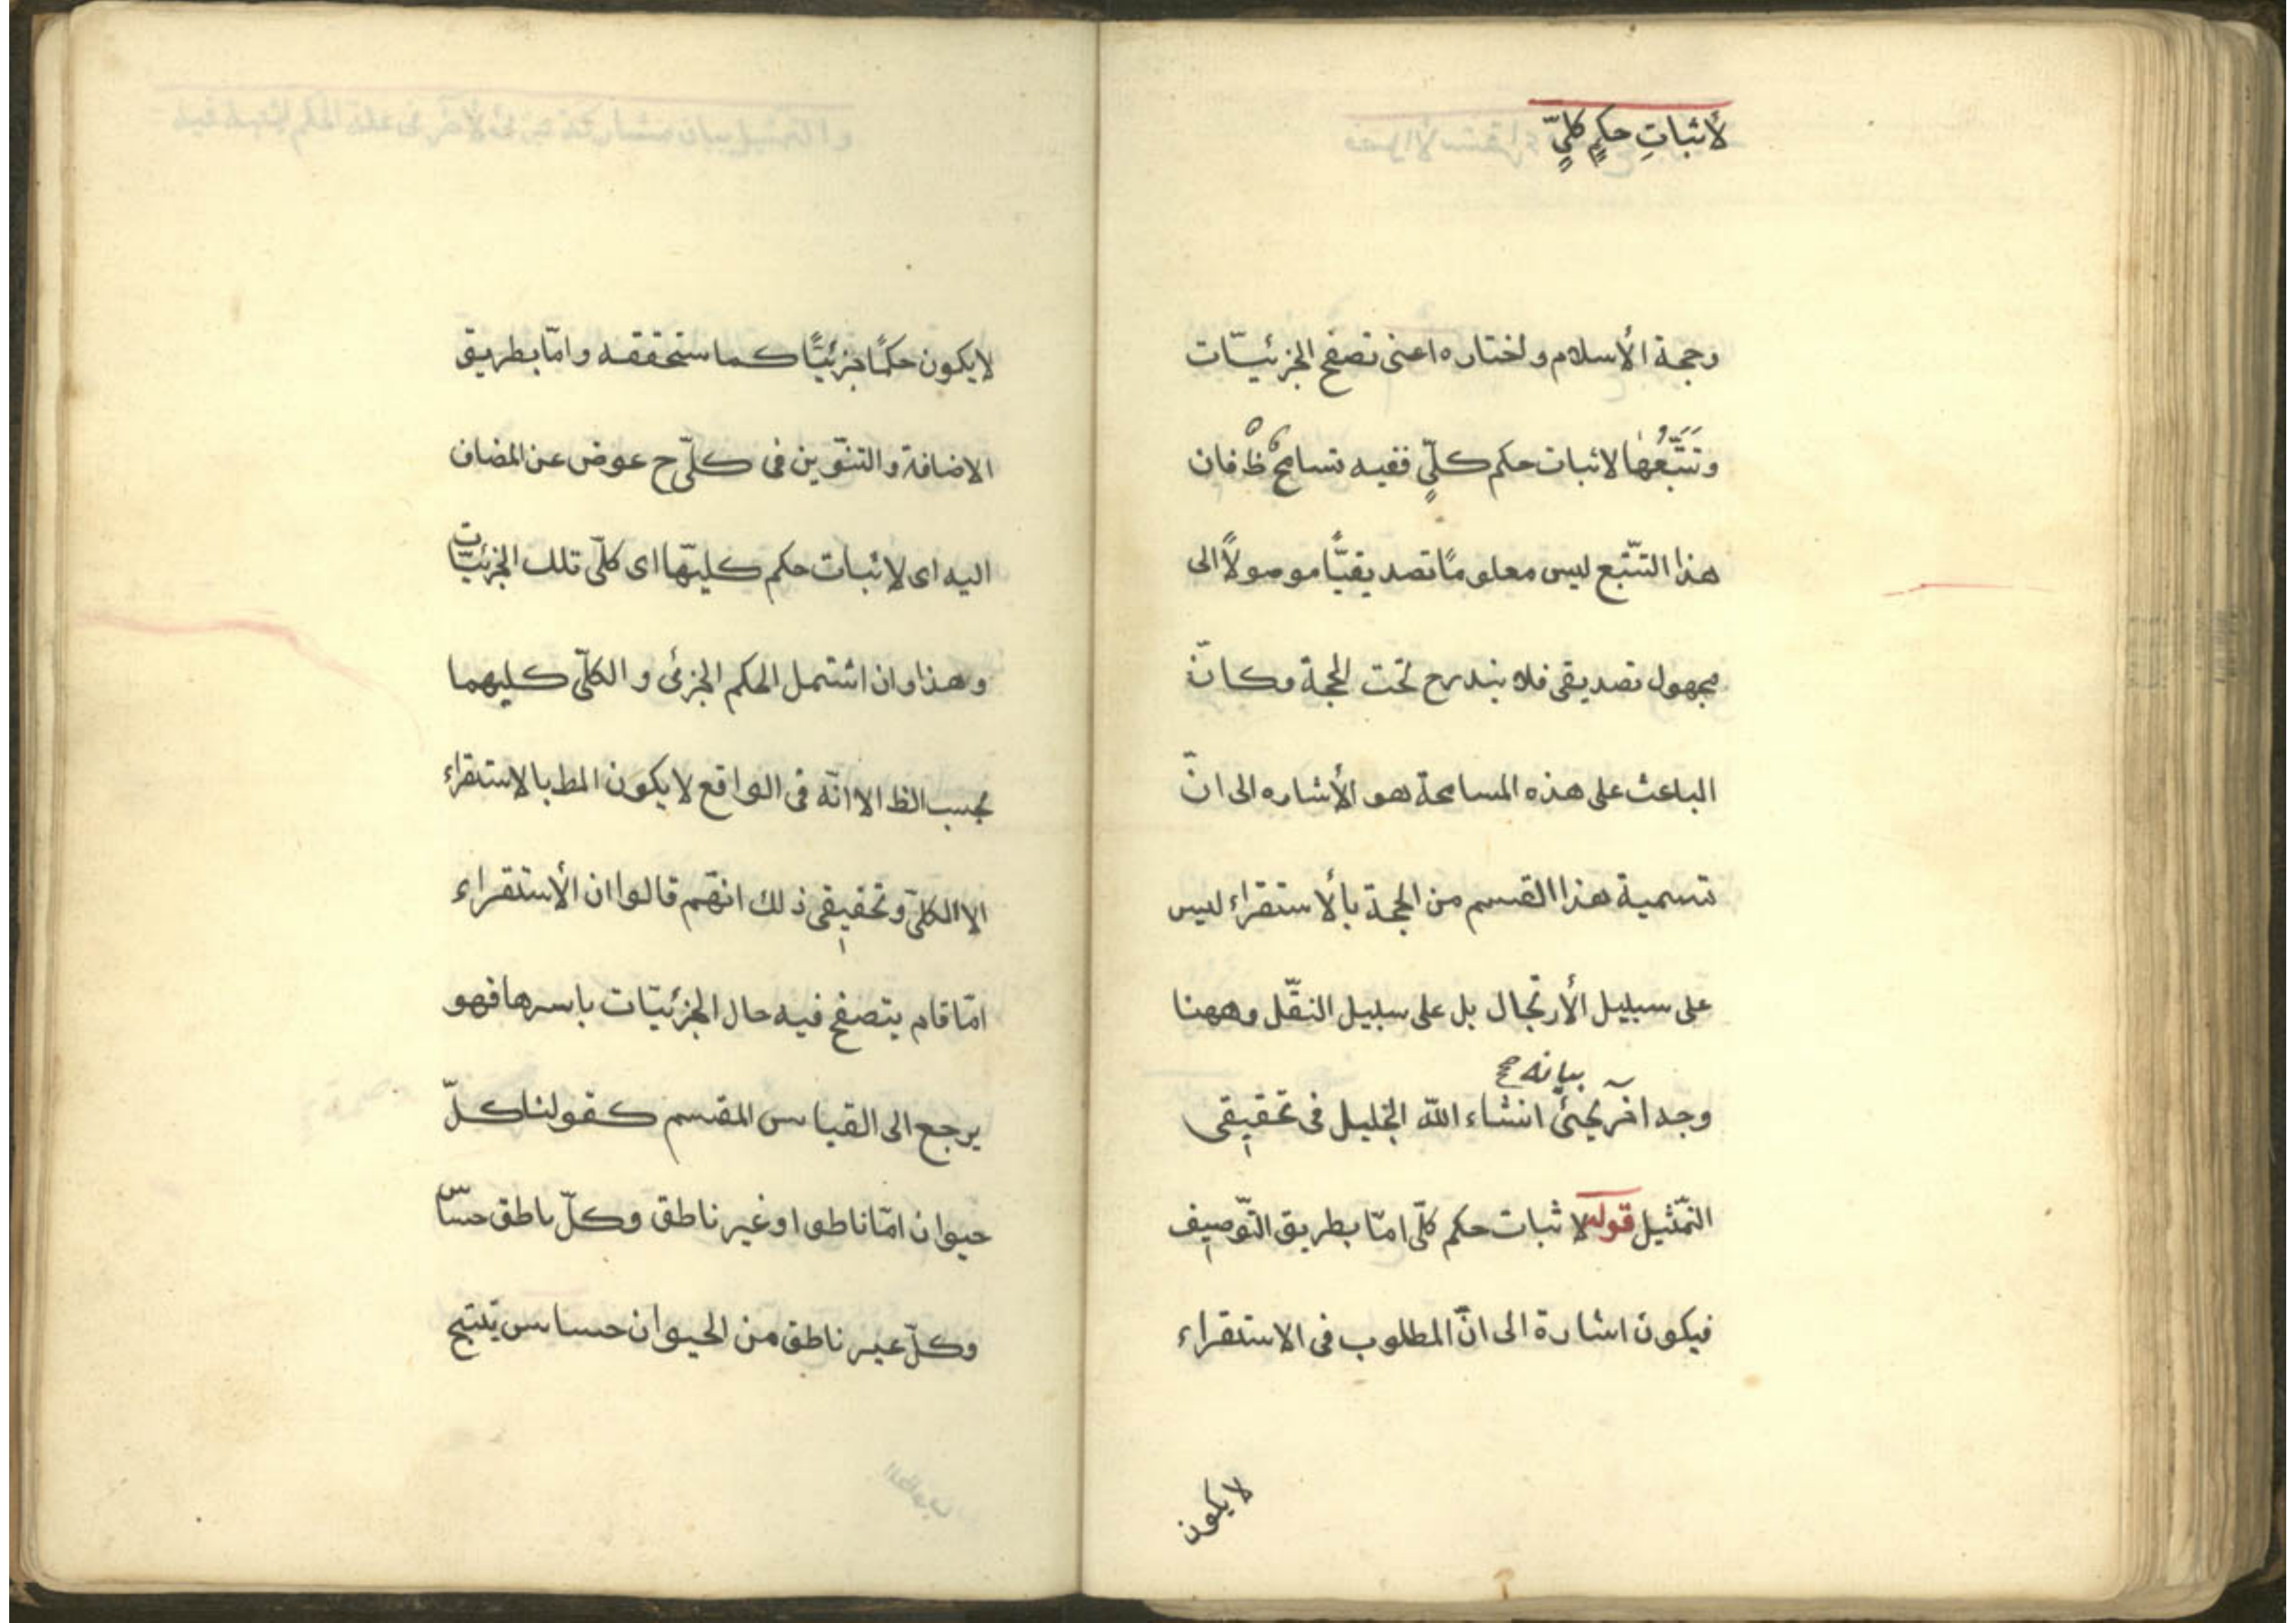 لأثباتِ حكمٍ كلیٍّ
وحجة الأسلام واختاره اعنی تصفح الجزئیّات
وتَتَبُّعُها لاثبات حکم کلّیٍ ففیه تسامح ظ فان
هذا التتّبع لیس معلومًا تصدیقیًّا موصولاً الی
مجهول تصدیقی فلا یندرج تحت الحجة وکانّ
الباعث علی هذه المسامحة هو الأشاره الی انّ
تسمیة هذا القسم من الحجة بألاستقراء لیس
علی سبیل الأرتجال بل علی سبیل النقّل وههنا
بیانه صح
وجه آخر یجئ انشاء الله الجلیل فی تحقیق
التمّثیل قوله لاثبات حکم کلّی امّا بطریق التّوصیف
فیکون اشارة الی انّ المطلوب فی الاستقراء
لایکون
لایکون حکمًا جزئیًّا کما ستحققه وامّا بطریق
الاضافة والتنوّین فی کلّی ح عوض عن المضاف
الیه ای لاثبات حکم کلیّها ای کلّی تلك الجزئیّات
وهذا وان اشتمل الحکم الجزئی والکلّی کلیهما
بحسب الظ الا انّه فی الواقع لایکون المط بالاستقراء
الا الکلّی وتحقیق ذلك انهّم قالوا ان الأستقراء
امّا قام یتصفح فیه حال الجزئیّات باسرها فهو
یرجع الی القیاس المقسم کقولنا کلّ
حیوان امّا ناطق او غیر ناطق وکلّ ناطق حسّاس
وکلّ غیر ناطق من الحیوان حساس ینتج